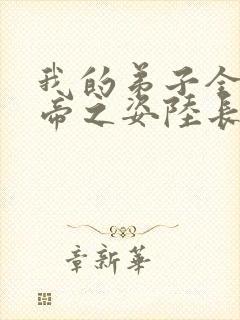 我的弟子全
帝之姿陸長
章新華